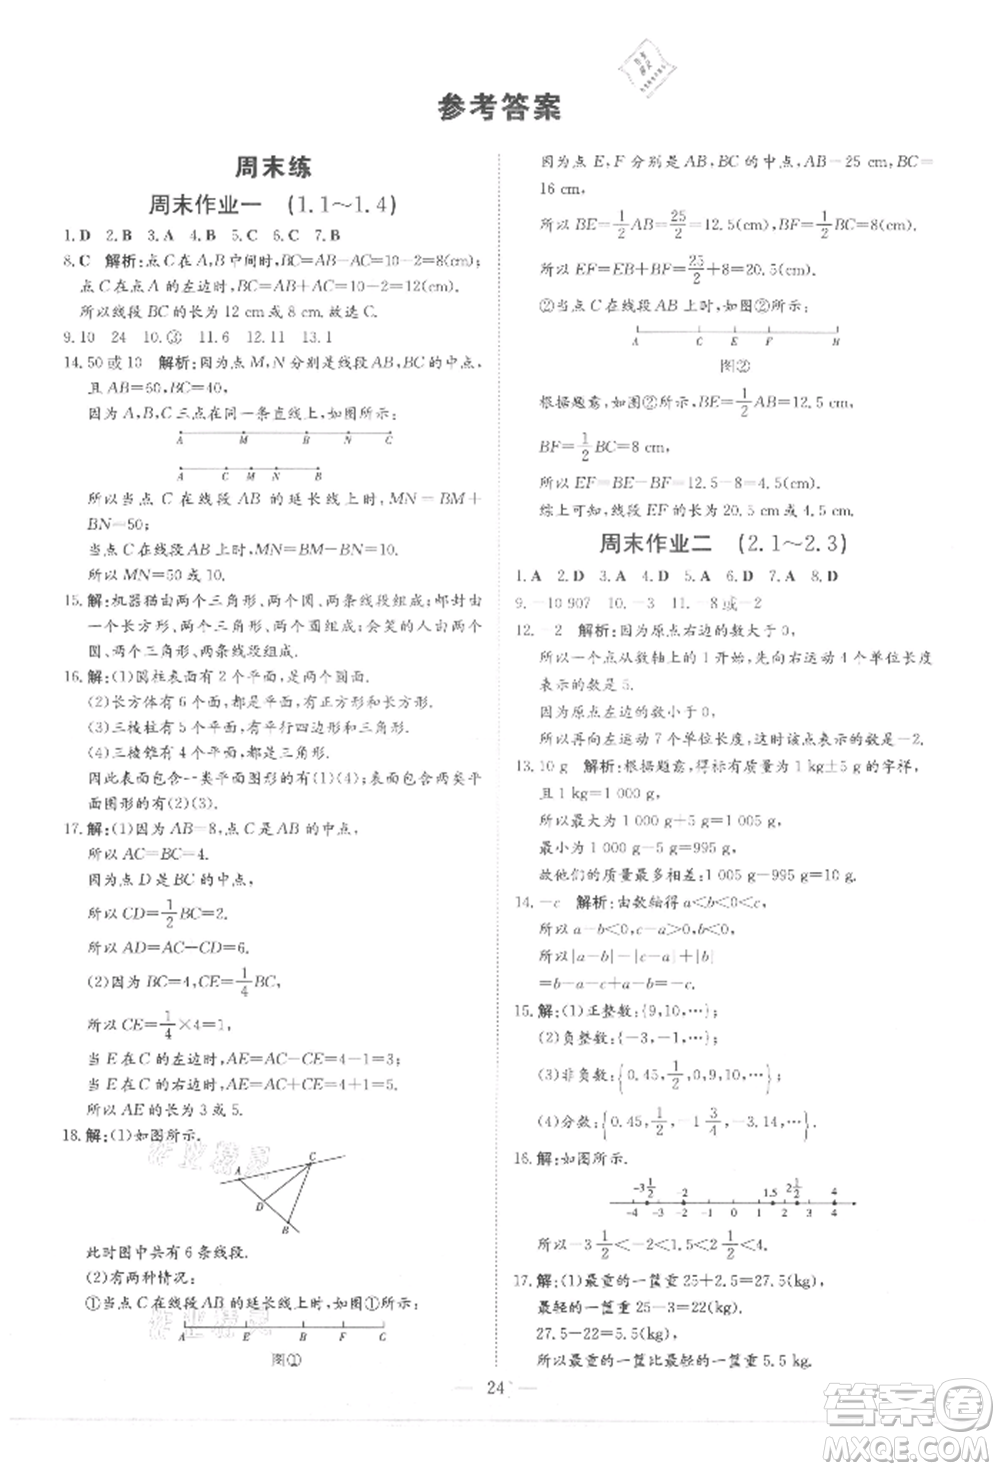 参考答案
周末练
周末作业一 (1.1～1.4)
1.D 2.B 3.A 4.B 5.C 6.C 7.B
8.C 解析:点C在A,B中间时,BC=AB-AC=10-2=8(cm);
点C在点A的左边时,BC=AB+AC=10+2=12(cm).
所以线段BC的长为12 cm或8 cm.故选C.
9.10 24 10.③ 11.6 12.11 13.1
14.50或10 解析:因为点M,N分别是线段AB,BC的中点,
且AB=60,BC=40,
因为A,B,C三点在同一条直线上,如图所示:
A M B N C
A C M N B
所以当点C在线段AB的延长线上时,MN=BM+
BN=50;
当点C在线段AB上时,MN=BM-BN=10.
所以MN=50或10.
15.解:机器猫由两个三角形、两条线段组成;邮封由
一个长方形、两个三角形、两个圆组成;会笑的人由两个
圆、两个三角形、两条线段组成.
16.解:(1)圆柱表面有2个平面,是两个圆面.
(2)长方体有6个平面,有正方形和长方形.
(3)三棱柱有5个平面,有平行四边形和三角形.
(4)三棱锥有4个平面,都是三角形.
因此表面包含一类平面图形的有(1)(4);包含两类平
面图形的有(2)(3).
17.解:(1)因为AB=8,点C是AB的中点,
所以AC=BC=4.
因为点D是BC的中点,
所以CD=1/2BC=2.
所以AD=AC+CD=6.
(2)因为BC=4,CE=1/4BC,
所以CE=1/4×4=1.
当E在C的左边时,AE=AC-CE=4-1=3;
当E在C的右边时,AE=AC+CE=4+1=5.
所以AE的长为3或5.
18.解:(1)如图所示.
A C D B
此时图中共有6条线段.
(2)有两种情况:
①当点C在线段AB的延长线上时,如图①所示:
A E B F C
图①
因为点E,F分别是AB,BC的中点,AB=25 cm,BC=
16 cm,
所以BE=1/2AB=25/2=12.5(cm),BF=1/2BC=8(cm)
所以EF=EB+BF=25/2+8=20.5(cm);
②当点C在线段AB上时,如图②所示:
A C E F B
图②
根据题意,如图②所示,BE=1/2AB=12.5 cm,
BF=1/2BC=8 cm,
所以EF=BE-BF=12.5-8=4.5(cm).
综上可知,线段EF的长为20.5 cm或4.5 cm.
周末作业二 (2.1～2.3)
1.A 2.D 3.A 4.D 5.A 6.D 7.A 8.D
9.-10 907 10.-3 11.-8或-2
12.-2 解析:因为原点右边的数大于0,
所以一个点从数轴上的1开始,先向右运动4个单位长度
表示的数是5.
因为原点左边的数小于0,
所以再向左运动7个单位长度,这时该点表示的数是-2.
13.10 g 解析:根据题意,得标有质量为1 kg±5 g的字样,
且1 kg=1 000 g,
所以最大为1 000 g+5 g=1 005 g,
最小为1 000 g-5 g=995 g,
故他们的质量最多相差:1 005 g-995 g=10 g.
14.-c 解析:由数轴得a<b<0<c,
所以a-b<0,c-a>0,
所以|a-b|-|c-a|+|b|
=b-a-c+a-b=-c.
15.解:(1)正整数:{9,10,…};
(2)负整数:{-3,-1,…};
(3)非负数:{0.45,1/2,0,9,10,…};
(4)分数:{0.45,1/2,-1 3/4,-3.14,…}.
16.解:如图所示.
-3 1/2 -2 1.5 2 1/2 4
-4 -3 -2 -1 0 1 2 3 4
所以-3 1/2<-2<1.5<2 1/2<4.
17.解:(1)最重的一筐重25+2.5=27.5(kg),
最轻的一筐重25-3=22(kg),
27.5-22=5.5(kg),
所以最重的一筐比最轻的一筐重5.5 kg.
24
作业精灵
作业精灵
答案卷
MXQE.COM